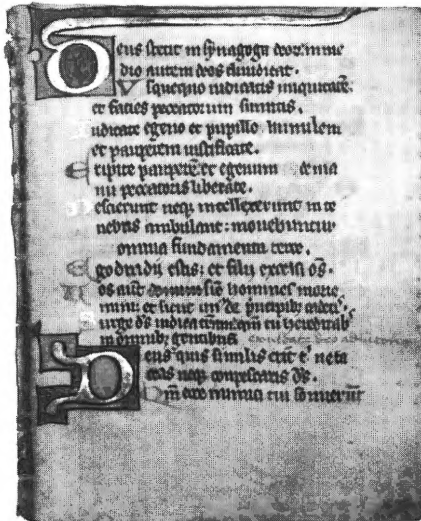 Deus stetit in synagoga deor̄. in me
dio autem deos diiudicat.
Usquequo iudicatis iniquitatē:
et facies peccatorum sumitis.
Iudicate egeno et pupillo humilem
et pauperem iustificate.
Eripite pauperē: et egenum de ma
nu peccatoris liberate.
Nescierunt neq; intellexerunt in te
nebris ambulant: mouebuntur
omnia fundamenta terre.
Ego dixi dii estis: et filii excelsi
Vos autē sic homines
mini: et sicut un' de principib; cadetis.
Surge d̄s iudica terram: qm̄ tu hereditab
in omnib; gentibus
Deus quis similis erit t' ne ta
ceas neq; compescaris d̄s.
inimici tui sonuerūt